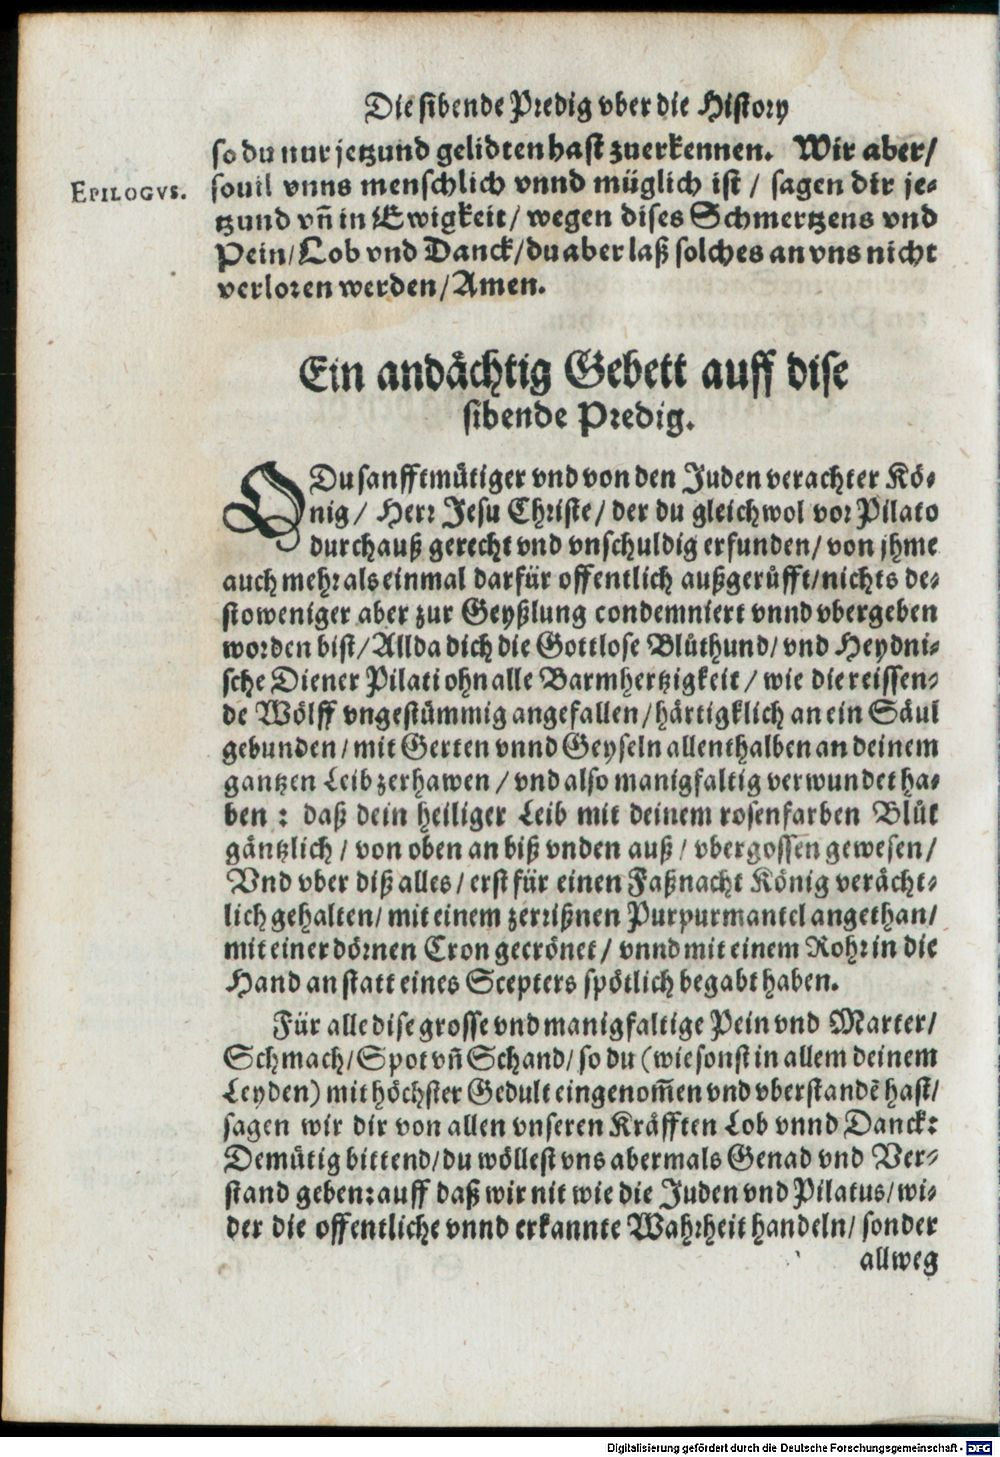 Die sibende Predig vber die History
so du nur jetzund gelidten hast zuerkennen. Wir aber/
EPILOGVS.
souil vnns menschlich vnnd müglich ist / sagen dir je-
tzund vñ in Ewigkeit/ wegen dises Schmertzens vnd
Pein/ Lob vnd Danck/ du aber laß solches an vns nicht
verloren werden/ Amen.
Ein andächtig Gebett auff dise
sibende Predig.
O Du sanfftmütiger vnd von den Juden verachter Kö-
nig/ Herr Jesu Christe/ der du gleichwol vor Pilato
durchauß gerecht vnd vnschuldig erfunden/ von jhme
auch mehr als einmal darfür offentlich außgerüfft/ nichts de-
stoweniger aber zur Geyßlung condemniert vnnd vbergeben
worden bist/ Allda dich die Gottlose Blůthund/ vnd Heydni-
sche Diener Pilati ohn alle Barmhertzigkeit / wie die reissen-
de Wölff vngestümmig angefallen/ härtigklich an ein Säul
gebunden/ mit Gerten vnnd Geyseln allenthalben an deinem
gantzen Leib zerhawen / vnd also manigfaltig verwundet ha-
ben : daß dein heiliger Leib mit deinem rosenfarben Blůt
gäntzlich / von oben an biß vnden auß / vbergossen gewesen/
Vnd vber diß alles/ erst für einen Faßnacht König verächt-
lich gehalten/ mit einem zerrißnen Purpurmantel angethan/
mit einer dörnen Cron gecrönet/ vnnd mit einem Rohr in die
Hand an statt eines Scepters spötlich begabt haben.
Für alle dise grosse vnd manigfaltige Pein vnd Marter/
Schmach/ Spot vñ Schand/ so du (wie sonst in allem deinem
Leyden) mit höchster Gedult eingenom̃en vnd vberstandẽ hast/
sagen wir dir von allen vnseren Kräfften Lob vnnd Danck:
Demütig bittend/ du wöllest vns abermals Genad vnd Ver-
stand geben: auff daß wir nit wie die Juden vnd Pilatus/ wi-
der die offentliche vnnd erkannte Wahrheit handeln/ sonder
allweg
Digitalisierung gefördert durch die Deutsche Forschungsgemeinschaft - DFG